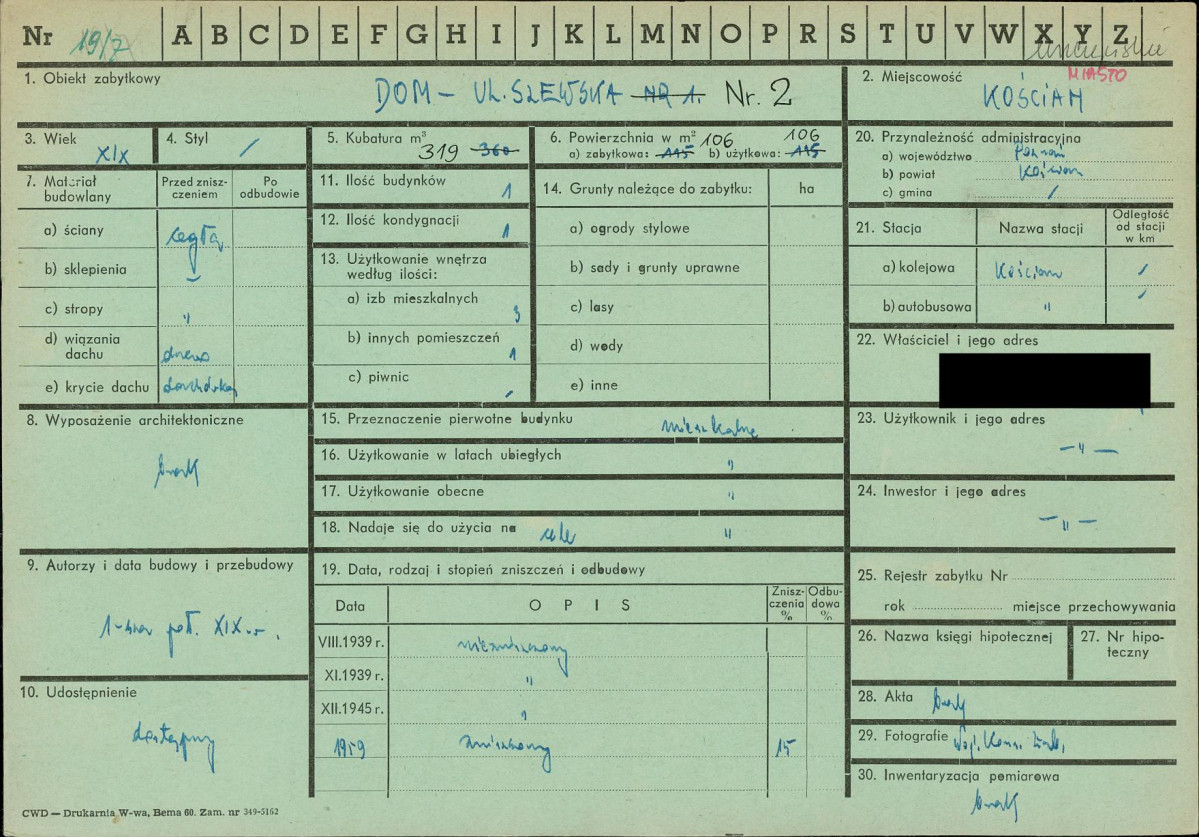 Nr 19/7 A B C D E F G H I J K L M N O P R S T U V W X Y Z
MIASTO
1. Obiekt zabytkowy
DOM – UL. SZEWSKA NR 1. Nr. 2
2. Miejscowość
KOŚCIAN
3. Wiek XIX
4. Styl /
5. Kubatura m³ 319 360
6. Powierzchnia w m² 106 106
a) zabytkowa: 115 b) użytkowa: 115
7. Materiał budowlany
Przed zniszczeniem
Po odbudowie
a) ściany cegła
b) sklepienia
c) stropy "
d) wiązania dachu drewno
e) krycie dachu dachówka
8. Wyposażenie architektoniczne
brak
9. Autorzy i data budowy i przebudowy
poł. XIX w.
10. Udostępnienie
dostępny
11. Ilość budynków 1
12. Ilość kondygnacji 1
13. Użytkowanie wnętrza według ilości:
a) izb mieszkalnych 3
b) innych pomieszczeń 1
c) piwnic
14. Grunty należące do zabytku: ha
a) ogrody stylowe
b) sady i grunty uprawne
c) lasy
d) wody
e) inne
15. Przeznaczenie pierwotne budynku mieszkalne
16. Użytkowanie w latach ubiegłych "
17. Użytkowanie obecne "
18. Nadaje się do użycia na cele "
19. Data, rodzaj i stopień zniszczeń i odbudowy
Data OPIS Zniszczenia % Odbudowa %
VIII.1939 r. niezniszczony
XI.1939 r. "
XII.1945 r. "
1959 zniszczony 15
20. Przynależność administracyjna
a) województwo Poznań
b) powiat Kościan
c) gmina /
21. Stacja Nazwa stacji Odległość od stacji w km
a) kolejowa Kościan /
b) autobusowa " /
22. Właściciel i jego adres
23. Użytkownik i jego adres
– " –
24. Inwestor i jego adres
– " –
25. Rejestr zabytku Nr
rok miejsce przechowywania
26. Nazwa księgi hipotecznej
27. Nr hipoteczny
28. Akta brak
29. Fotografie Woj. Kons. Zab.
30. Inwentaryzacja pomiarowa
brak
CWD — Drukarnia W-wa, Bema 60. Zam. nr 349-5162